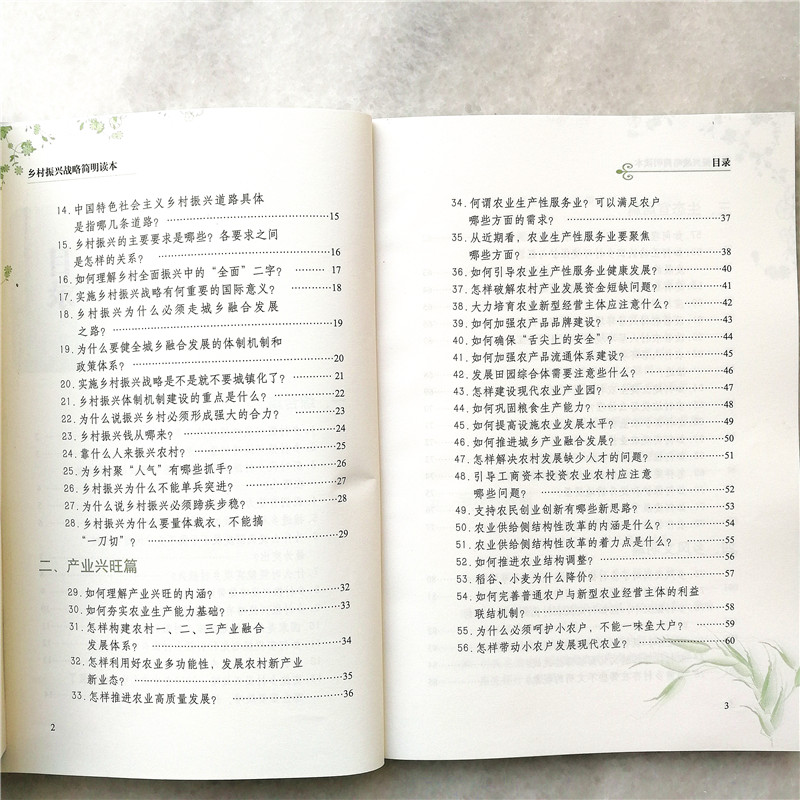 乡村振兴战略简明读本
14. 中国特色社会主义乡村振兴道路具体
是指哪几条道路? ……15
15. 乡村振兴的主要要求是哪些?各要求之间
是怎样的关系? ……16
16. 如何理解乡村全面振兴中的“全面”二字? ……17
17. 实施乡村振兴战略有何重要的国际意义? ……18
18. 乡村振兴为什么必须走城乡融合发展
之路? ……19
19. 为什么要健全城乡融合发展的体制机制和
政策体系? ……20
20. 实施乡村振兴战略是不是就不要城镇化了? ……21
21. 乡村振兴体制机制建设的重点是什么? ……22
22. 为什么说振兴乡村必须形成强大的合力? ……23
23. 乡村振兴钱从哪来? ……24
24. 靠什么人来振兴农村? ……25
25. 为乡村聚“人气”有哪些抓手? ……26
26. 乡村振兴为什么不能单兵突进? ……27
27. 为什么说乡村振兴必须蹄疾步稳? ……28
28. 乡村振兴为什么要量体裁衣,不能搞
“一刀切”? ……29
二、产业兴旺篇
29. 如何理解产业兴旺的内涵? ……32
30. 如何夯实农业生产能力基础? ……33
31. 怎样构建农村一、二、三产业融合
发展体系? ……34
32. 怎样利用好农业多功能性,发展农村新产业
新业态? ……35
33. 怎样推进农业高质量发展? ……36
2
目录
34. 何谓农业生产性服务业?可以满足农户
哪些方面的需求? ……37
35. 从近期看,农业生产性服务业要聚焦
哪些方面? ……38
36. 如何引导农业生产性服务业健康发展? ……40
37. 怎样破解农村产业发展资金短缺问题? ……41
38. 大力培育农业新型经营主体应注意什么? ……42
39. 如何加强农产品品牌建设? ……43
40. 如何确保“舌尖上的安全”? ……44
41. 如何加强农产品流通体系建设? ……45
42. 发展田园综合体需要注意些什么? ……46
43. 怎样建设现代农业产业园? ……47
44. 如何巩固粮食生产能力? ……48
45. 如何提高设施农业发展水平? ……49
46. 如何推进城乡产业融合发展? ……50
47. 怎样解决农村发展缺少人才的问题? ……51
48. 引导工商资本投资农业农村应注意
哪些问题? ……52
49. 支持农民创业创新有哪些新思路? ……53
50. 农业供给侧结构性改革的内涵是什么? ……54
51. 农业供给侧结构性改革的着力点是什么? ……55
52. 如何推进农业结构调整? ……56
53. 稻谷、小麦为什么降价? ……57
54. 如何完善普通农户与新型农业经营主体的利益
联结机制? ……58
55. 为什么必须呵护小农户,不能一味垒大户? ……59
56. 怎样带动小农户发展现代农业? ……60
3